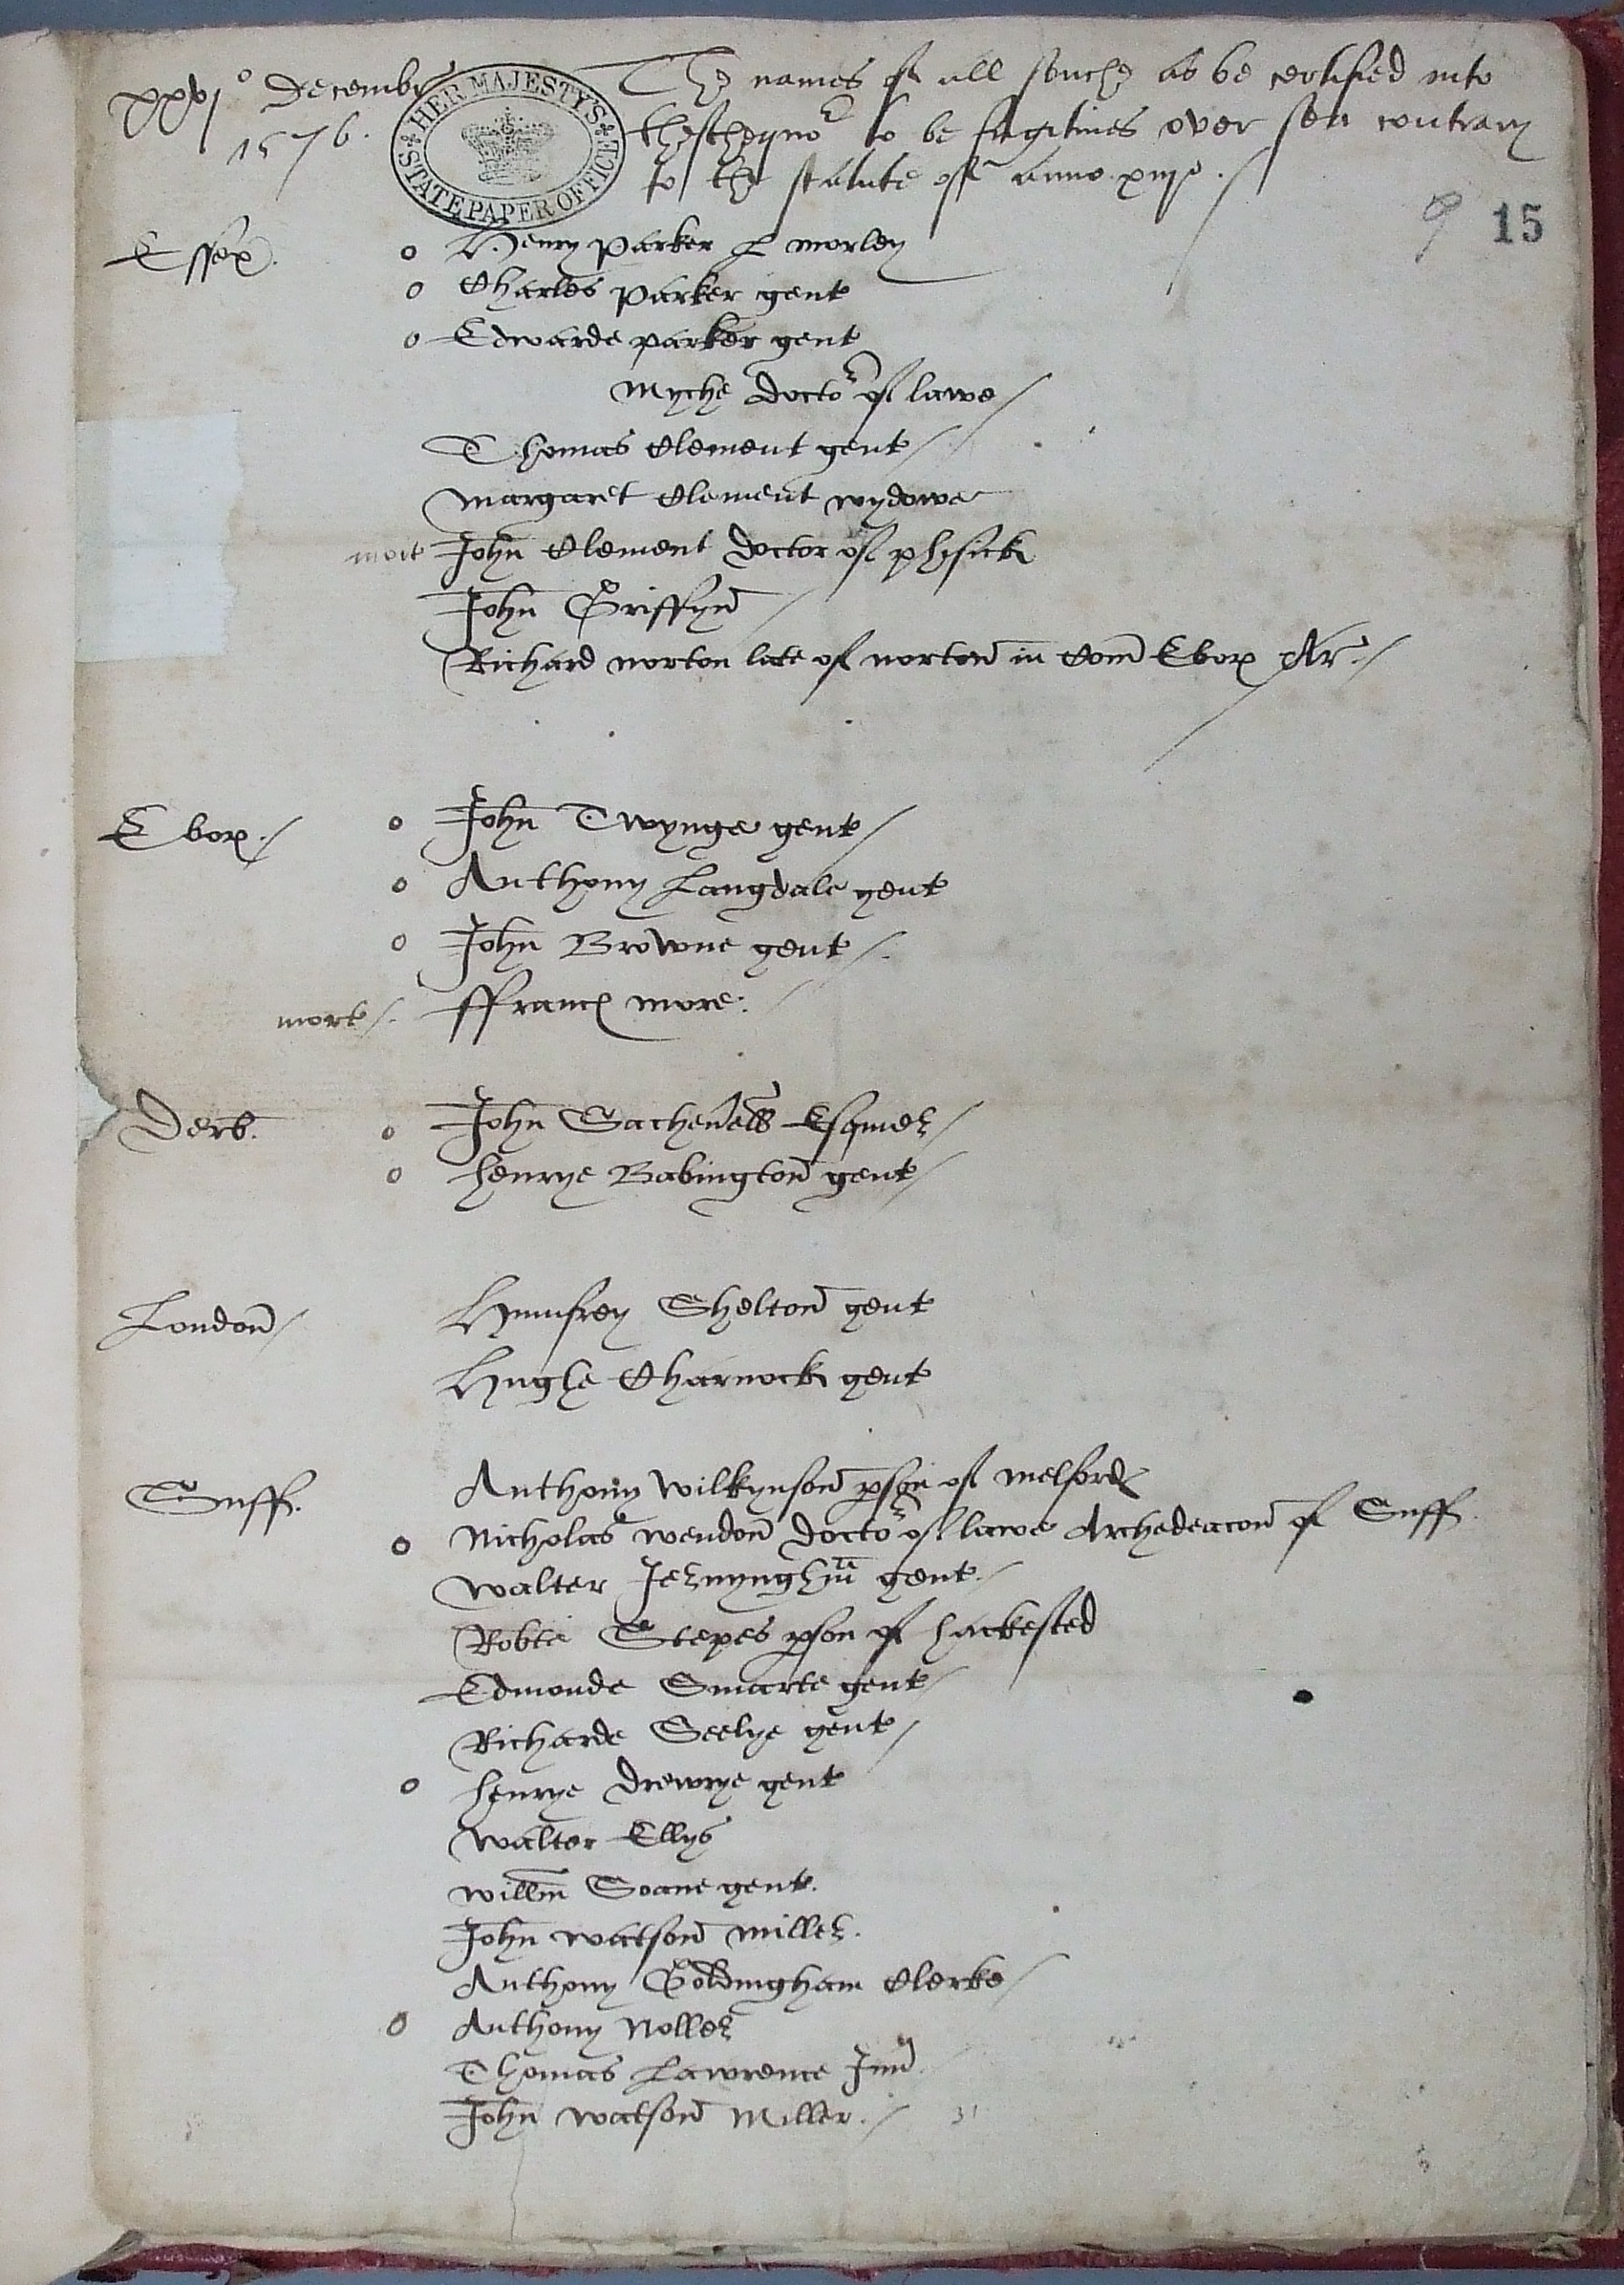 xxvjo Decembr
1576.
The names of all souche as be certified into
theschequor to be fugitives over sea contrary
to the statute of anno xiijo ./
HER MAJESTY'S STATE PAPER OFFICE
15
Essex.
o Henry Parker L morley
o Charles Parker gent
o Edwarde parker gent
Myche doctor of lawe /
Thomas Clement gent /
Margaret Clement wydowe
mort John Clement doctor of phisick
John Gryffyn
Richard norton late of norton in Com Ebor Ar ./
Ebor ./
o John Twynge gent /
o Anthony Langdale gent
o John Browne gent /.
mort /. ffrancs more.
Derb.
o John Sachevell Esquier /
o Henrye Babington gent /
London /
Humfrey Shelton gent
Hughe Charnock gent
Suff.
Anthony Wilkynson pson of melford
o Nicholas wendon doctor of lawe Archedeacon of Suff.
Walter Jernynghm gent /
Robte Stepes pson of hackested
Edmonde Smarte gent /
Richarde Seelye gent /
o Henrye drewrye gent
Walter Ellys
Willm Soane gent.
John watson miller.
Anthony Goldingham Clerke /
o Anthony Noller
Thomas Lawrence Jun
John watson Miller. / 31